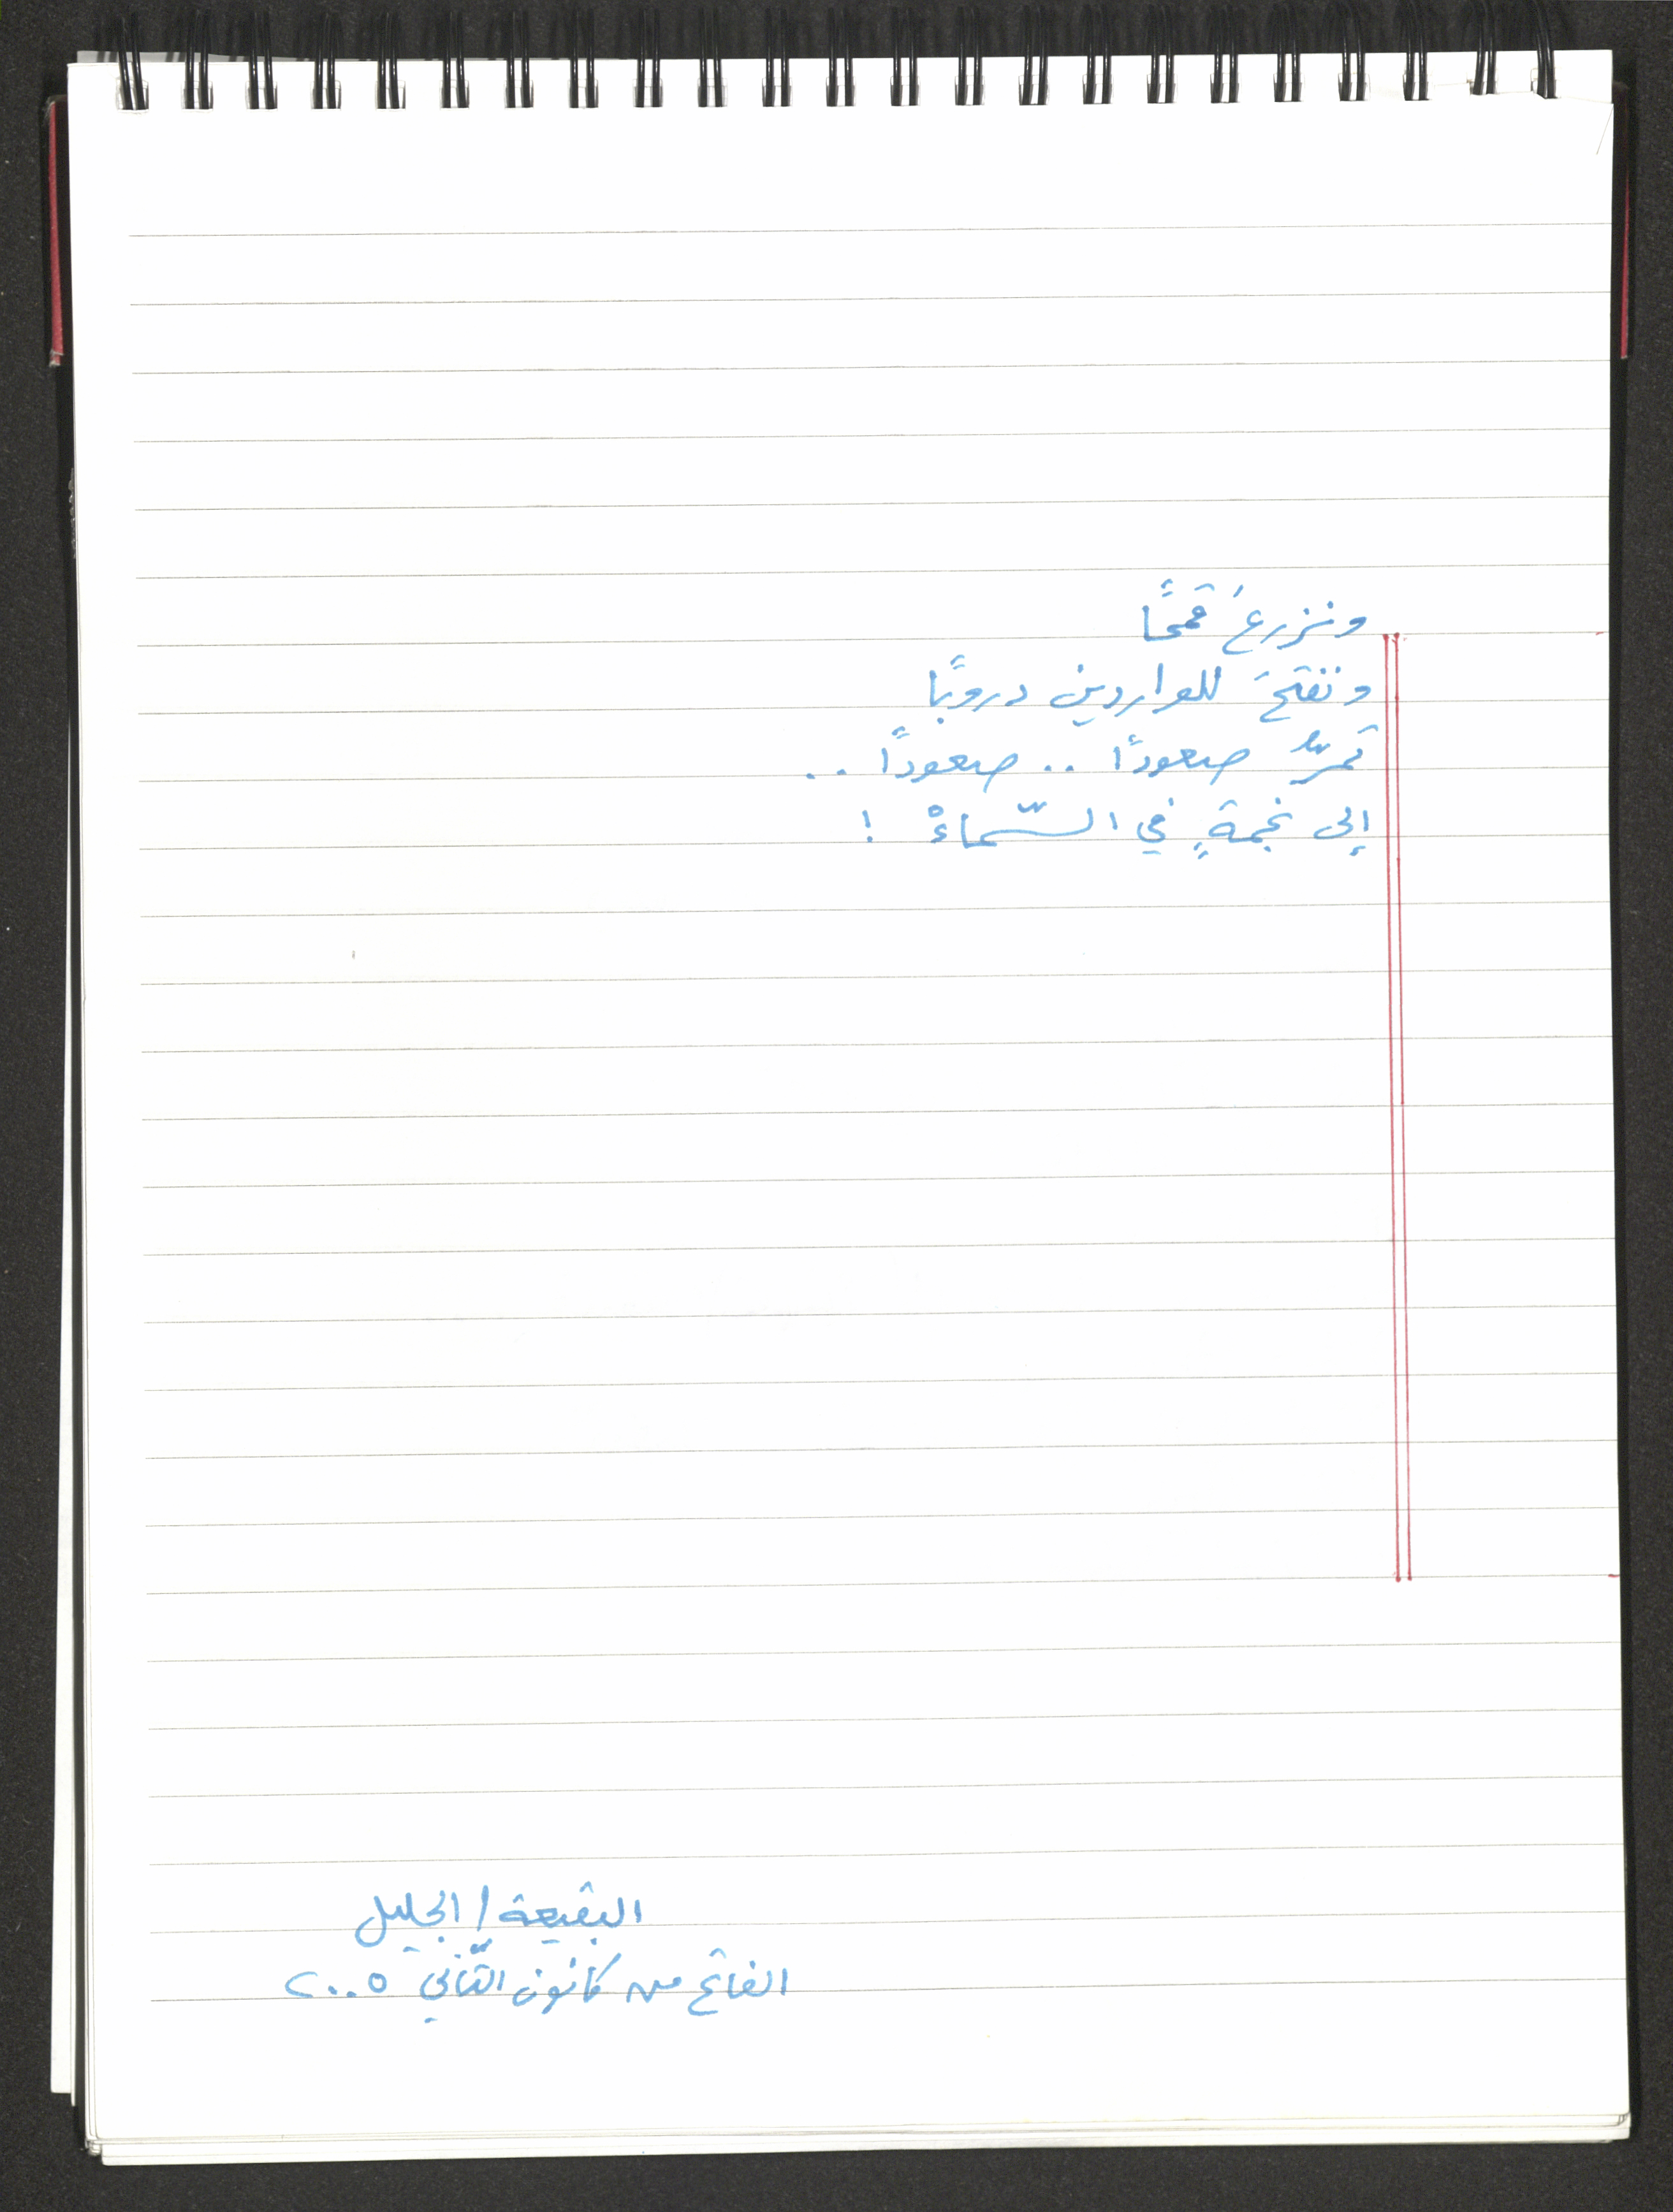 ونزرعُ قمحًا
ونفتحَ للواردين دروبًا
تمرّ صعودًا .. صعودًا ..
إلى نجمةٍ في السّماءْ !
البقيعة / الجليل
الفاتح من كانون الثّاني ٢٠٠٥